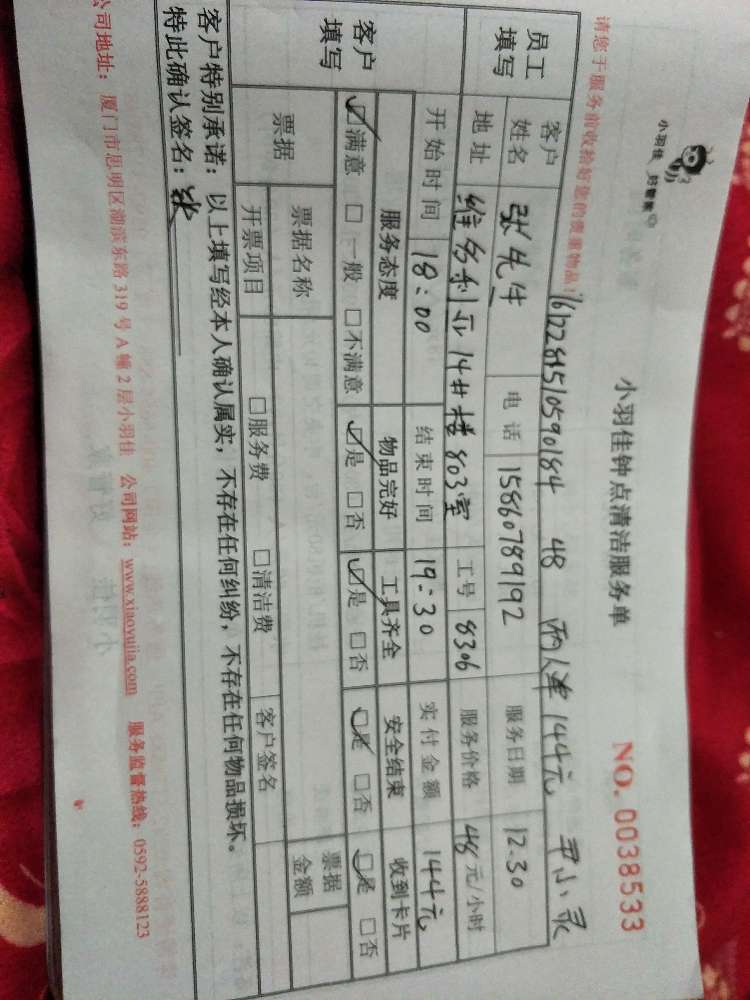 小羽佳 好管家
小羽佳钟点清洁服务单 NO. 0038533
请您于服务前收拾好您的贵重物品！ 1612281510590184 48 两人单 144元
员工填写 客户姓名 张先生 电话 15860789192 服务日期 12.30
地址 维多利亚14#楼803室 工号 8306 服务价格 48元/小时
开始时间 18:00 结束时间 19:30 实付金额 144元
客户填写 服务态度 物品完好 工具齐全 安全结束 收到卡片
☑满意 □一般 □不满意 ☑是 □否 ☑是 □否 ☑是 □否 ☑是 □否
票据 票据名称 票据金额
开票项目 □服务费 □清洁费 客户签名
客户特别承诺：以上填写经本人确认属实，不存在任何纠纷，不存在任何物品损坏。
特此确认签名：张
公司地址：厦门市思明区湖滨东路319号A幢2层小羽佳 公司网站：www.xiaoyujia.com 服务监督热线：0592-5888123